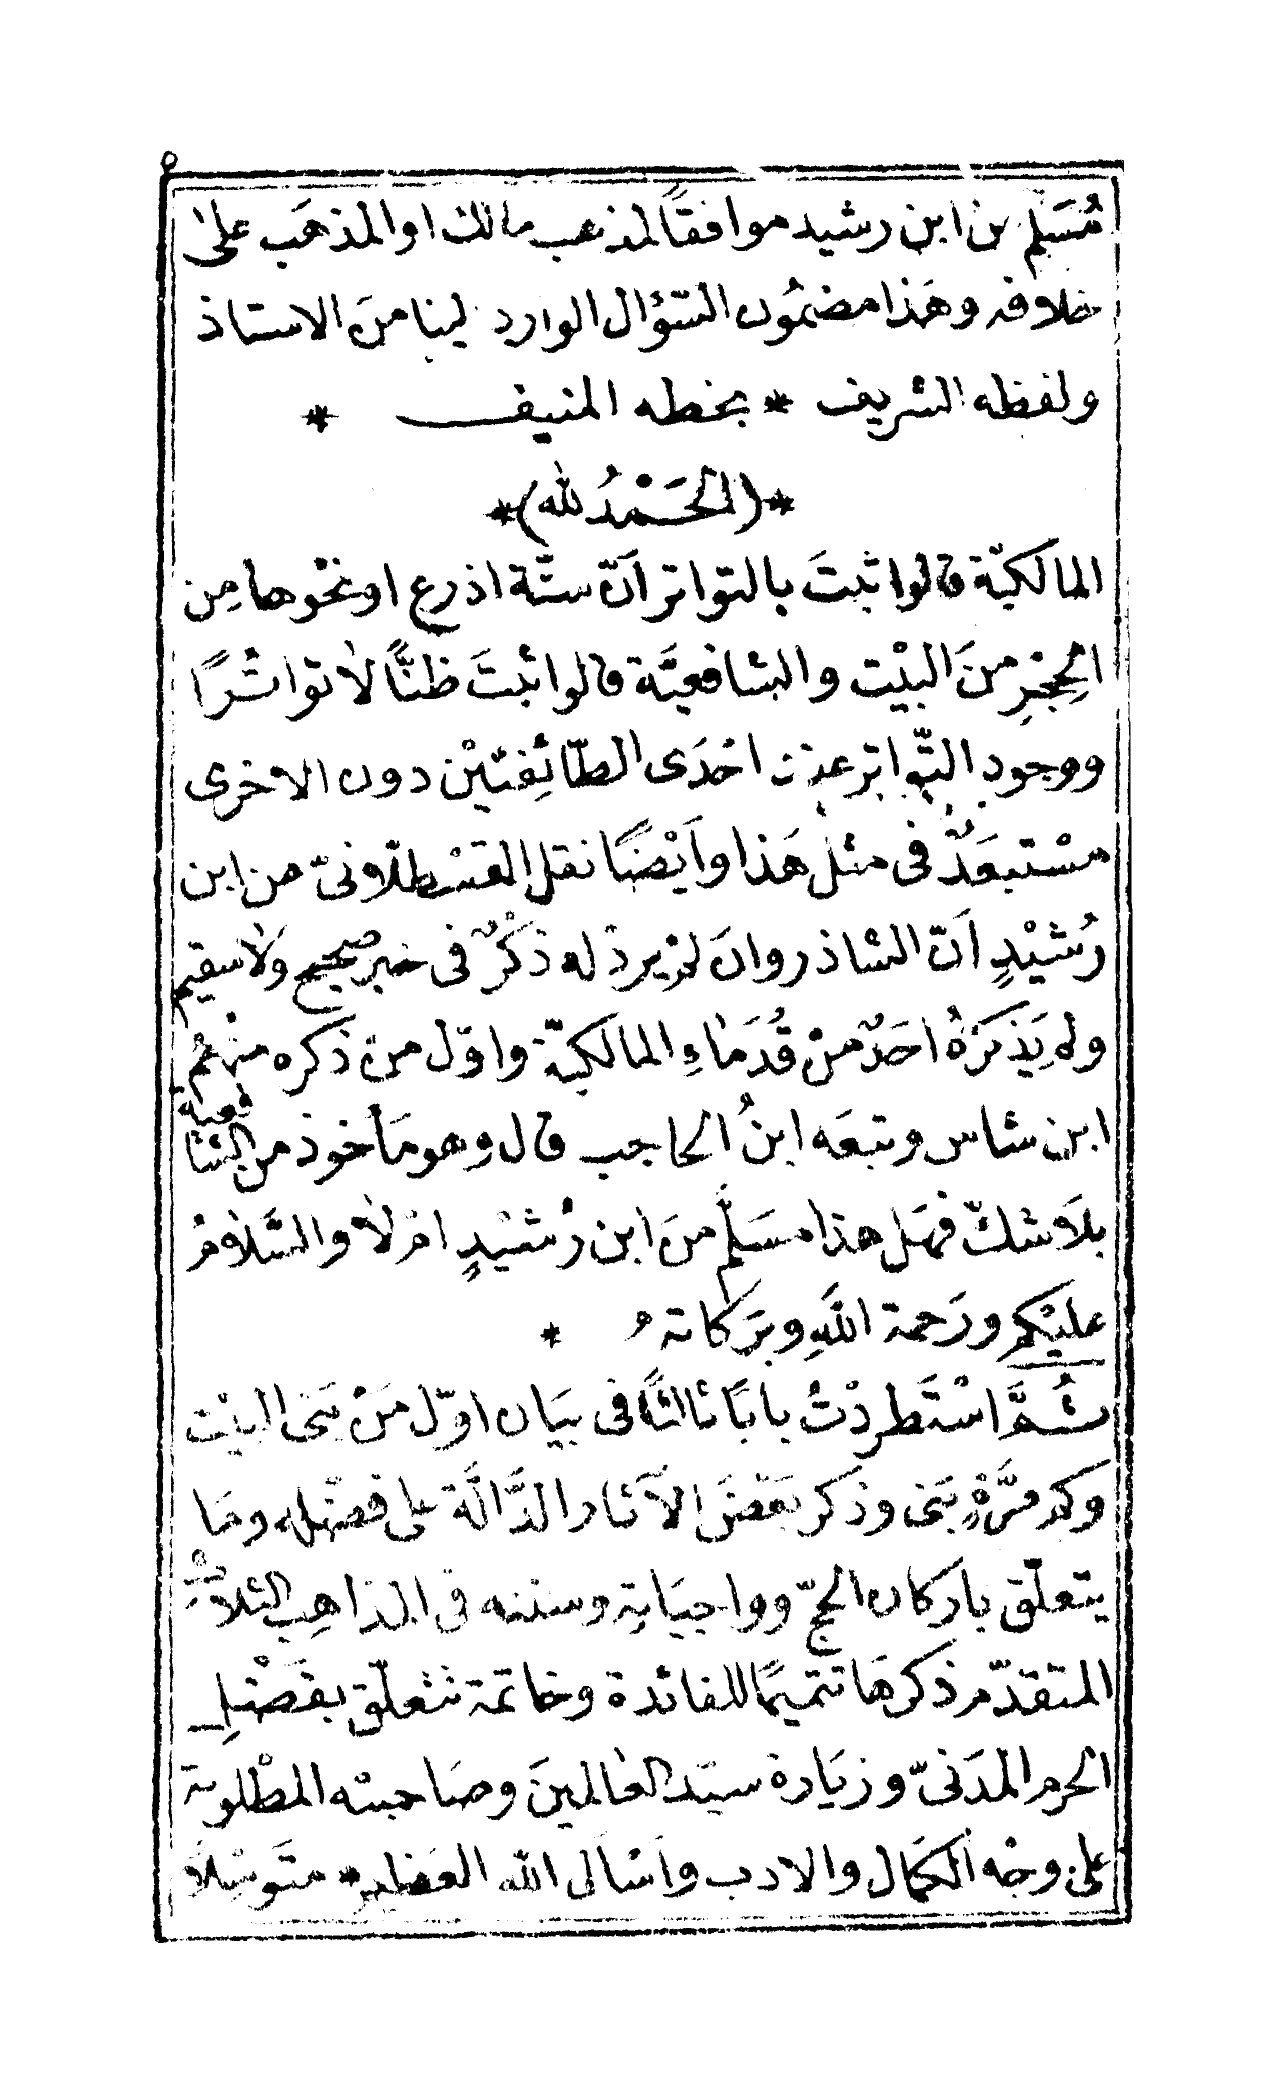 ٥
مُسَلَّم من ابن رشيد موافقاً لمذهب مالك او المذهَب علىٰ
خلافه وهَذا مضمُون السّؤال الوارد لينا منَ الاستاذ
ولفظه الشريف * بخطه المنيف *
*(الحَمْدُ لله)*
المالكيّة قالوا ثبتَ بالتواتر اَنّ ستّة اذرع او نحْوها مِن
الحِجْرِ منَ البيْت والشافعيَّة قالوا ثبتَ ظنًّا لا تواترًا
ووجود التّواتر عند احْدَى الطّائِفتيْن دون الاخرى
مسْتبعَدٌ فى مثل هَذا واَيْضًا نقل القسْطلّانىّ عن ابن
رُشيْدٍ اَنّ الشاذروانَ لم يرد له ذكْرٌ فى خبر صحيح ولَا سقيم
ولم يَذكرْهُ احَدٌ منْ قُدَمَاءِ المالكيّة واوّل من ذكره منْهُم
ابن شاس وتبعَه ابنُ الحاجب قال وهو مَأخوذ من الشافعية
بلَا شكّ فهَل هذا مسَلَّم منَ ابن رُشَيْدٍ امْ لَا والسَّلامُ
عليْكم ورَحمة اللَّهِ وبَرَكاته *
ثُمَّ اسْتَطردْتُ بابًا ثالثًا فى بيَان اوّل مَنْ بَنى البيْت
وكم مَرَّةٍ بَنى وذكر بَعْضَ الآثار الدَّالَّة على فضْله ومَا
يتعلّق باركان الحجّ وواجبَاتِه وسننه فى المذاهِب الثلاثَةِ
المتقدّم ذكرهَا تتميمًا للفائدة وخاتمة تتعلّق بفَضْلِ
الحرم المدَنىّ وزيَارة سيّد العَالمينَ وصَاحبيْه المطْلوبة
على وجْه الكمَال والادب واَسْاَلُ الله العَظيم * متَوسِّلاً